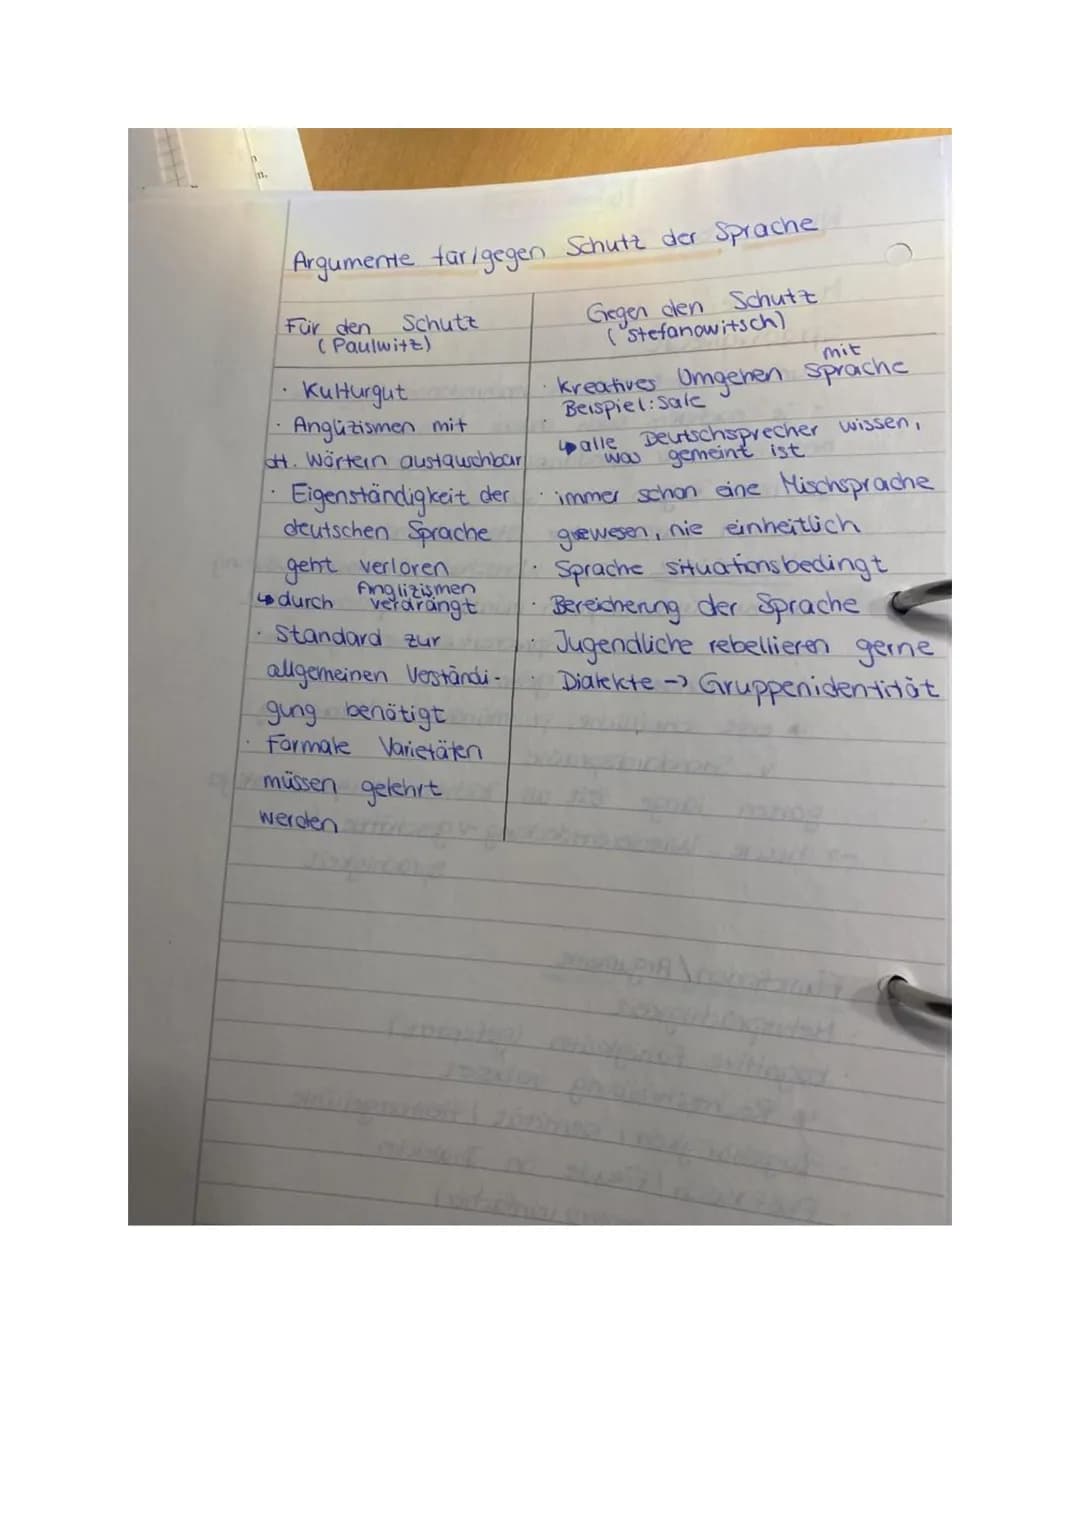 Argumente für/gegen Schutz der Sprache
Für den Schutz
(Paulwitz)
· Kulturgut
· Anglizismen mit
dt. Wörtern austauschbar
· Eigenständigkeit der
deutschen Sprache
geht verloren
↳ durch Anglizismen
verdrängt
· Standard zur
allgemeinen Verständi-
gung benötigt
· Formale Varietäten
müssen gelehrt
werden
Gegen den Schutz
(Stefanowitsch)
· kreatives Umgehen mit Sprache
Beispiel: Sale
↳ alle Deutschsprecher wissen,
was gemeint ist
· immer schon eine Mischsprache
gewesen, nie einheitlich
· Sprache situationsbedingt
· Bereicherung der Sprache
· Jugendliche rebellieren gerne
· Dialekte -> Gruppenidentität